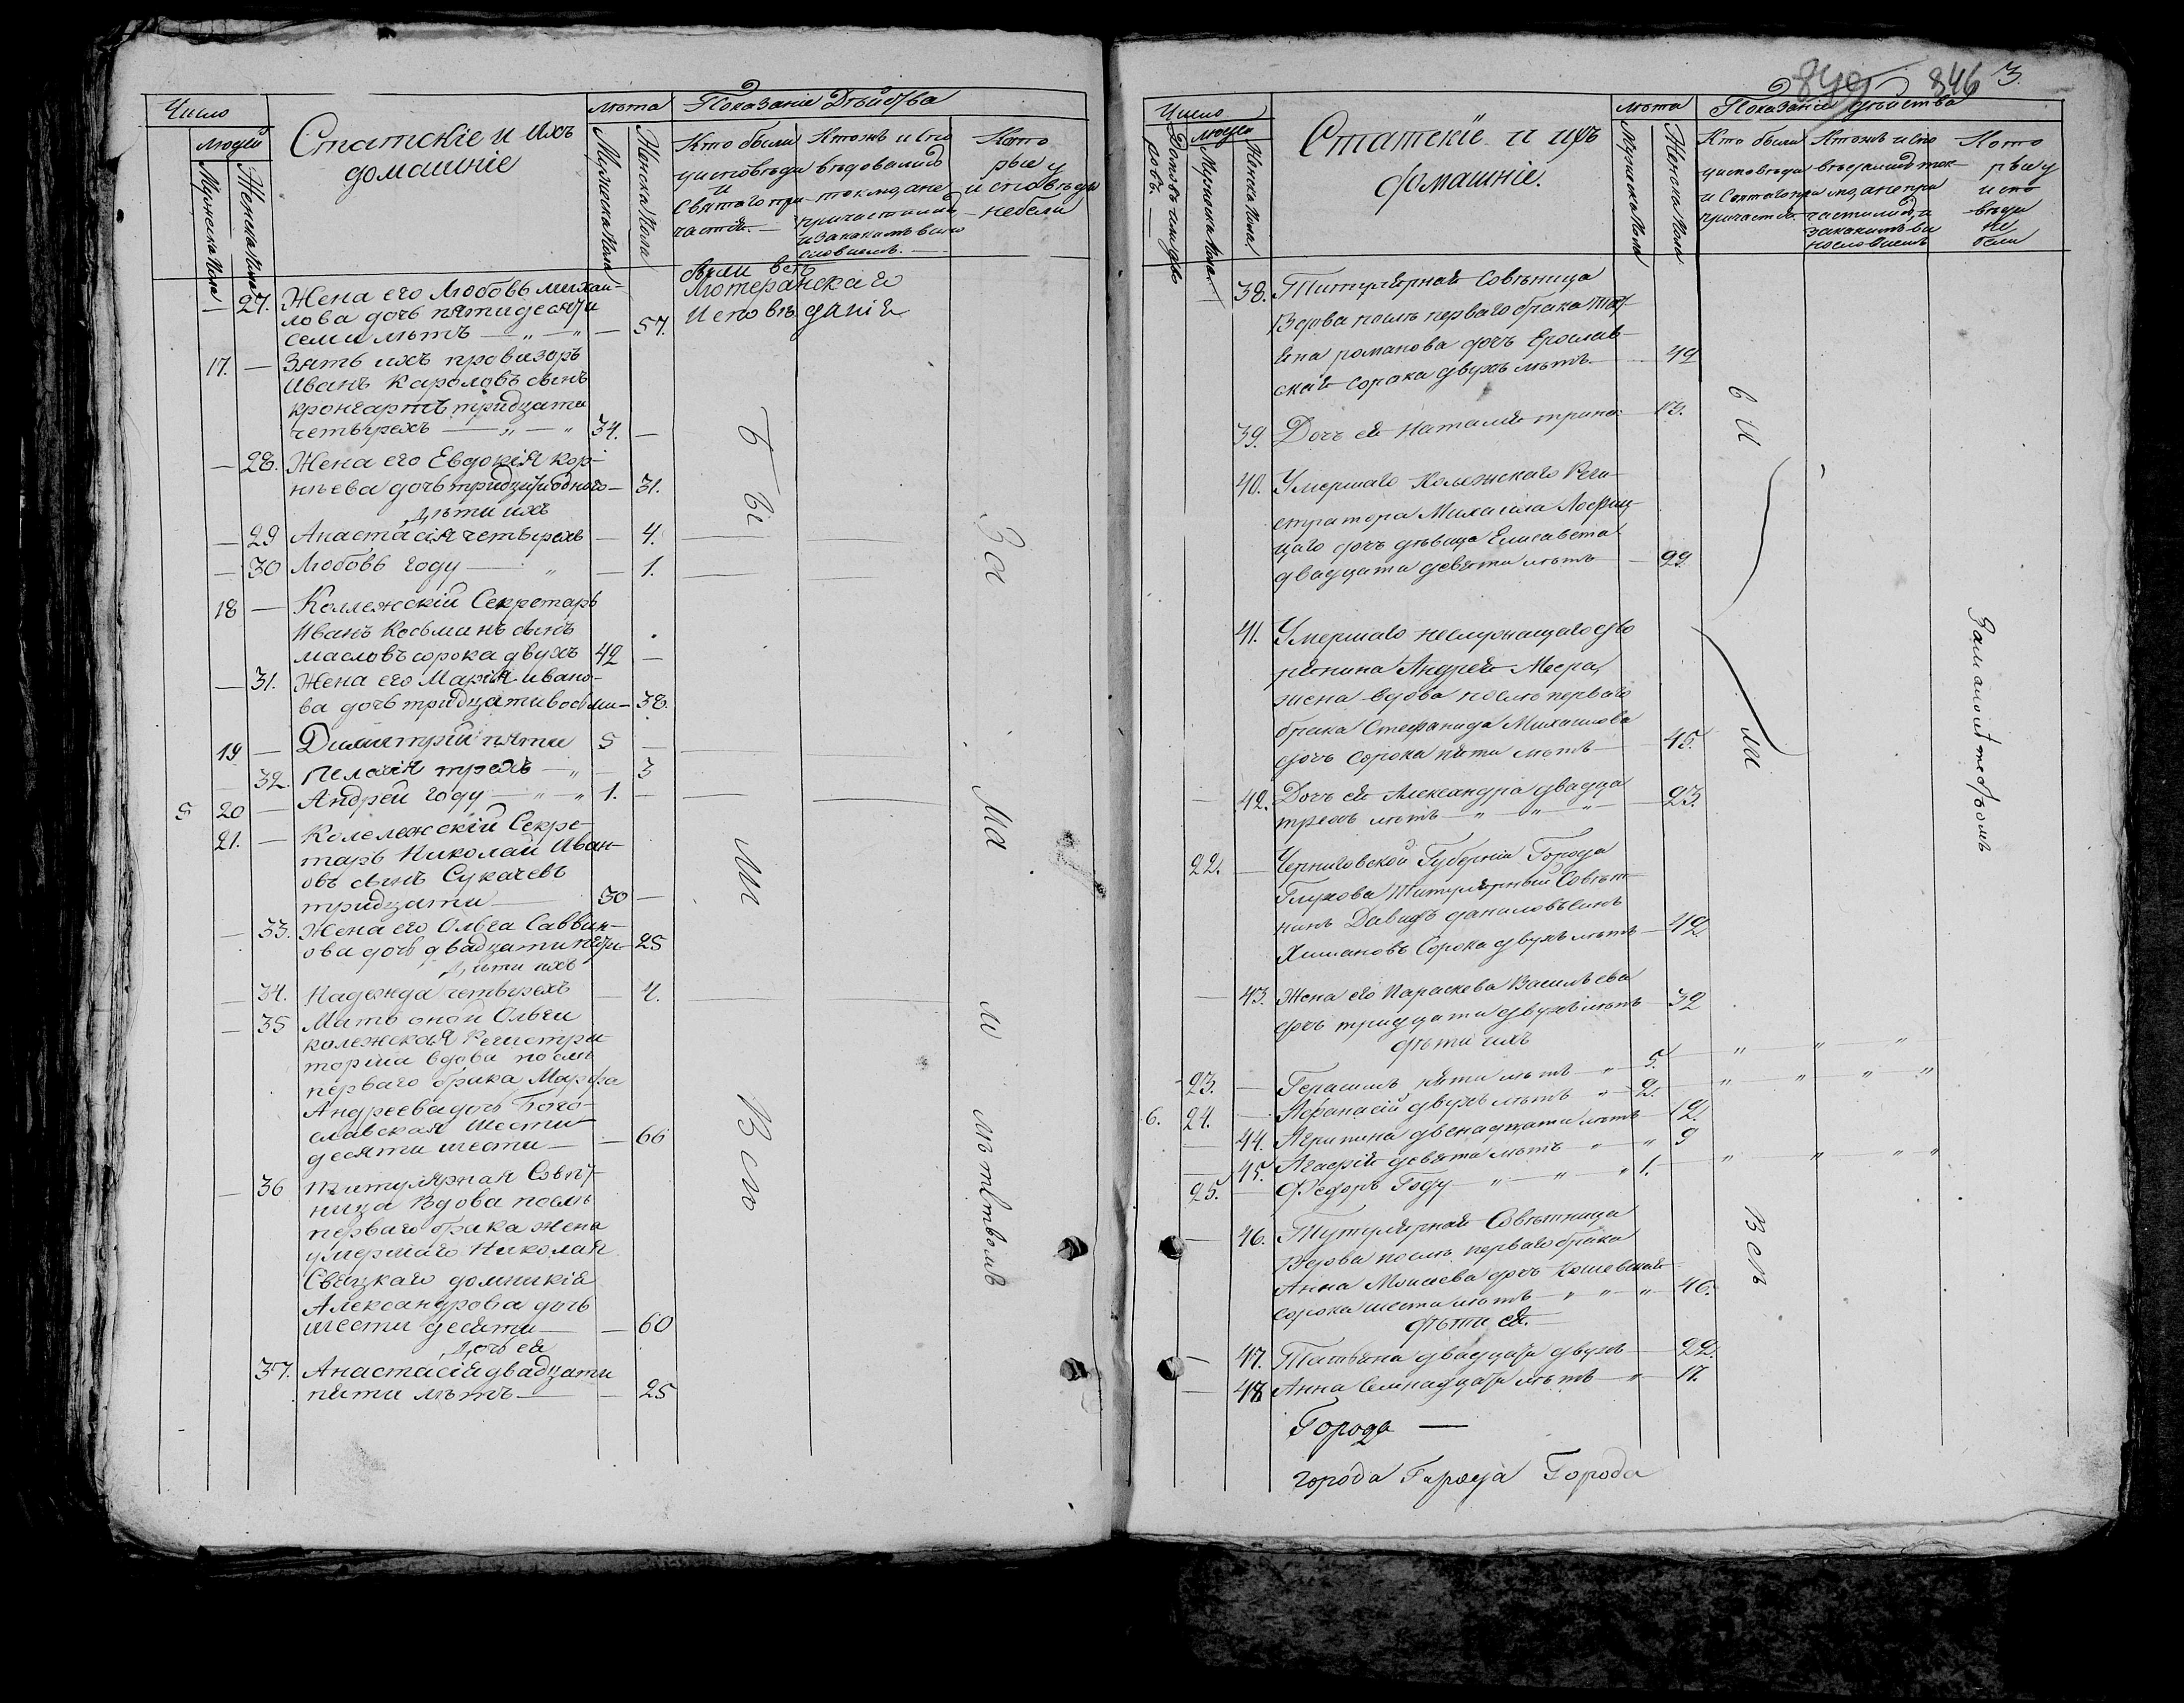 Число
Людей
Мужеска пола
Женска пола
Статскіе и ихъ
домашніе
лѣта
Мужеска пола
Женска пола
Показаніе Дѣйства
Кто были
у исповѣди
и
Святаго при-
частія.
Ктожъ испо
вѣдовались
токмо, а не
причастились
и за какимъ вино
словіемъ.
Кото
рые у
исповѣди
небыли
были всѣ
Лютеранскаго
Исповѣданія
27. Жена его Любовь Михаи-
лова дочь пятидесяти
семи лѣтъ — 57.
17. — Зять ихъ провизоръ
Иванъ Кароловъ сынъ
Кронгартъ тридцати
четырехъ — 34. —
— 28. Жена его Евдокія Кор-
нѣева дочь тридцати одного — 31.
Дѣти ихъ
— 29 Анастасія четырехъ — 4.
— 30 Любовь году — 1.
18 — Коллежскій Секретарь
Иванъ Косьминъ сынъ
Масловъ сорока двухъ 42 —
— 31. Жена его Марія Ивано-
ва дочь тридцативосьми — 38.
19 — Димитрій пяти 5 —
32. Пелагія трехъ — 3
5 20 — Андрей году 1. —
21. — Колележскій Секре-
тарь Николай Иван-
овъ сынъ Сукачевъ
тридцати 30 —
— 33. Жена его Ольга Саввин-
ова дочь двадцати пяти — 25
Дѣти ихъ
— 34. Надежда четырехъ — 4.
— 35 Мать оной Ольги
колежская Регистра
торша вдова послѣ
перваго брака Марфа
Андреева дочь Бого-
славская шести
десяти шести — 66
— 36 Титулярная Совѣт-
ница Вдова послѣ
перваго брака жена
умершаго Николая
Свяцкаго Домникія
Александрова дочь
шести десяти — 60
Дочь ея
37. Анастасія двадцати
пяти лѣтъ — 25
Бы
ли
Всѣ
За
ма
ло
лѣтствомъ
846 3.
Число
Дворовъ
Людей
Мужеска пола
Женска пола
Статскіе и ихъ
домашніе.
лѣта
Мужеска пола
Женска пола
Показаніе дѣйства
Кто были
у исповѣди
и Святаго
причастія.
Ктожъ испо
вѣдались ток-
мо, а не при
частились, и
за какимъ ви
нословіемъ
Кото
рые у
испо
вѣди
не
были
— 38. Титулярная Совѣтница
Вдова послѣ перваго брака Тат-
яна Романова дочь Ерослав-
ская сорока двухъ лѣтъ 42
39. Дочь ея Наталія трина 13.
40. Умершаго Колежскаго Реги-
стратора Михаила
дочь дѣвица Елисавета
двадцати девяти лѣтъ — 29
41. Умершаго неслужащаго дво
рянина Андрея
жена вдова послѣ перваго
брака Стефанида Михаилова
дочь сорока пяти лѣтъ — 45.
— 42. Дочь ея Александра двадца
трехъ лѣтъ — 23.
22. — Черниговской Губерніи Города
Глухова Титулярный Совѣт-
никъ Давидъ Даниловъ сынъ
Сорока двухъ лѣтъ — 42
— 43. Жена его Параскева Васильева
дочь тридцати двухъ лѣтъ — 32
дѣти ихъ
23. — Герасимъ пяти лѣтъ 5.
6. 24. — Афанасій двухъ лѣтъ 2.
— 44. Агрипина двенадцати лѣтъ — 12
— 45. Агафія девяти лѣтъ 9
25. — Федоръ Году 1.
— 46. Тутулярная Совѣтница
Вдова послѣ перваго брака
Анна Моисеева дочь
сорока шести лѣтъ 46.
дѣти ея.
— 47. Татьяна двадцати двухъ — 22.
— 48. Анна Семнадцати лѣтъ 17.
Города —
города Города Города
бы
ли
Всѣ
За малолѣтствомъ